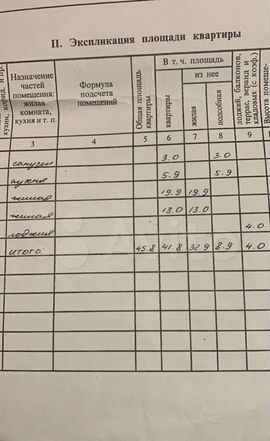 II. Экспликация площади квартиры
кухни, корид. и пр.
Назначение частей помещения: жилая комната, кухня и т. п.
Формула подсчета помещений
Общая площадь квартиры
В т. ч. площадь
из нее
квартиры
жилая
подсобная
лоджий, балконов, террас, веранд и кладовых (с коэф.)
Высота помеще-
3 4 5 6 7 8 9
санузел 3.0 3.0
кухня 5.9 5.9
жилая 19.9 19.9
жилая 13.0 13.0
лоджия 4.0
итого: 45.8 41.8 32.9 8.9 4.0
Avito